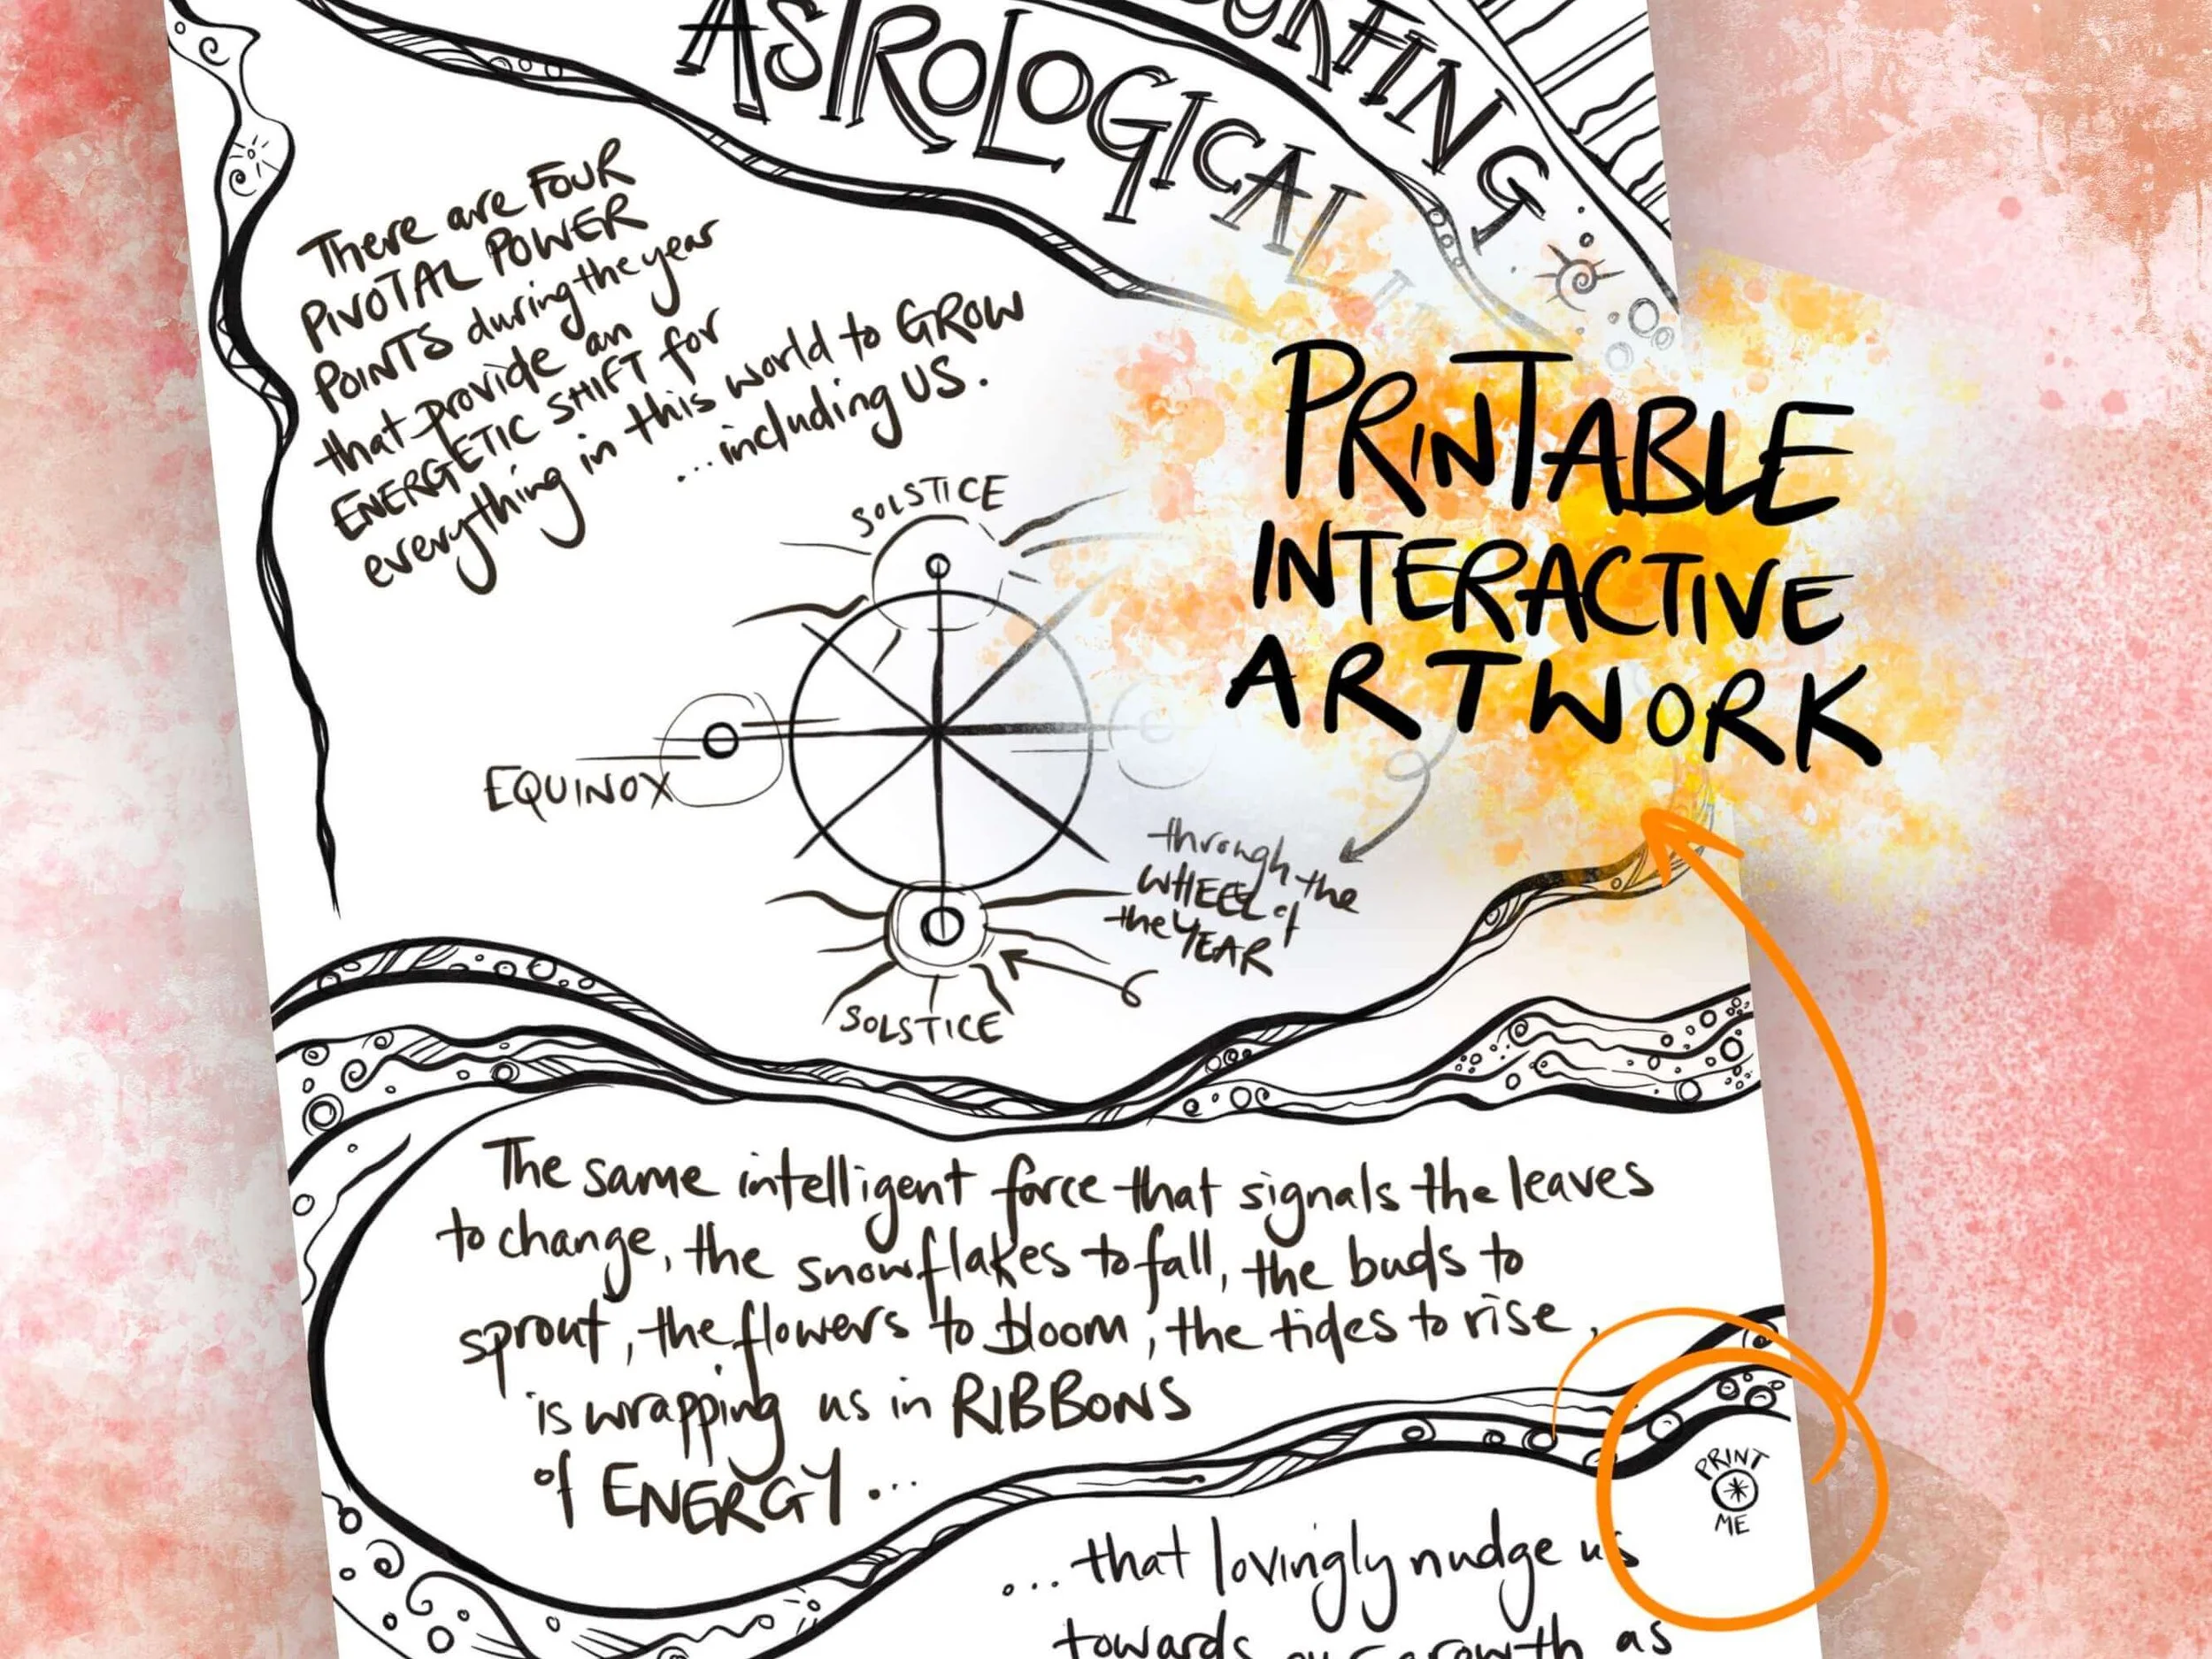 ASTROLOGICAL
There are FOUR
PIVOTAL POWER
POINTS during the year
that provide an
ENERGETIC SHIFT for
everything in this world to GROW
...including US.
PRINTABLE
INTERACTIVE
ARTWORK
SOLSTICE
EQUINOX
through the
WHEEL of
the YEAR
SOLSTICE
The same intelligent force that signals the leaves
to change, the snowflakes to fall, the buds to
sprout, the flowers to bloom, the tides to rise,
is wrapping us in RIBBONS
of ENERGY...
PRINT
ME
...that lovingly nudge us
towards our growth as